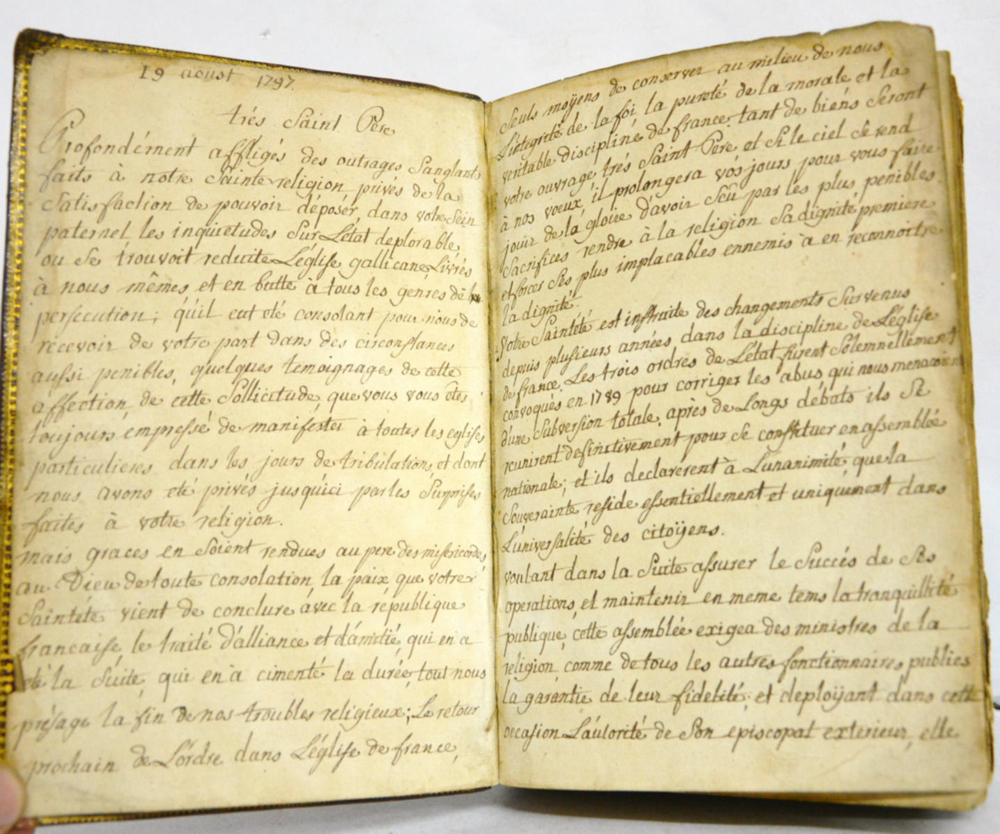 19 aoust 1797.
très Saint Père
Profondément affligés des outrages Sanglants
faits à notre Sainte religion privés de la
Satisfaction de pouvoir déposér dans votre Sein
paternel les inquiétudes Sur L'état deplorable
ou Se trouvoit reduite L'église gallicane, Livrés
à nous mêmes et en butte à tous les genres de la
persecution; qu'il eut été consolant pour nous de
recevoir de votre part dans des circonstances
aussi penibles, quelques témoignages de cette
affection, de cette Sollicitude que vous vous êtes
toujours empressé de manifester à toutes les eglises
particulieres dans les jours de tribulations, et dont
nous avons été privés jusqu'ici par les Surprises
faites à votre religion.
mais graces en Soient rendues au pere des misericordes
au Dieu de toute consolation la paix que votre
Sainteté vient de conclure avec la république
francaise, le traité d'alliance et d'amitié, qui en a
été la Suite, qui en a cimenté la durée, tout nous
présage la fin de nos troubles religieux; Le retour
prochain de L'ordre dans L'église de france,
Seuls moÿens de conserver au milieu de nous
L'integrité de la foi, la pureté de la morale et la
veritable discipline de france. tant de biens Seront
votre ouvrage très Saint Père et Si le ciel Se rend
à nos voeux il prolongera vos jours pour vous faire
jouir de la gloire d'avoir Seu par les plus penibles
Sacrifices rendre à la religion Sa dignité premiere
et forcer Ses plus implacables ennemis a en reconnoitre
la dignité.
Votre Sainteté est instruite des changements Survenus
depuis plusieurs années dans la discipline de L'église
de france, Les trois ordres de L'état furent Solemnellement
convoqués en 1789 pour corriger les abus qui nous menacoient
d'une Subversion totale, après de Longs débats ils Se
reunirent definitivement pour Se constituer en assemblée
nationale; et ils declarerent à L'unanimité que la
Souverainte reside essentiellement et uniquement dans
L'universalité des citoÿens.
voulant dans la Suite assurer le Succés de Ses
operations, et maintenir en meme tems la tranquillité
publique, cette assemblée exigea des ministres de la
religion, comme de tous les autres fonctionnaires publics
la garantie de leur fidelité; et deploÿant dans cette
occasion L'autorité de Son episcopat exterieur, elle